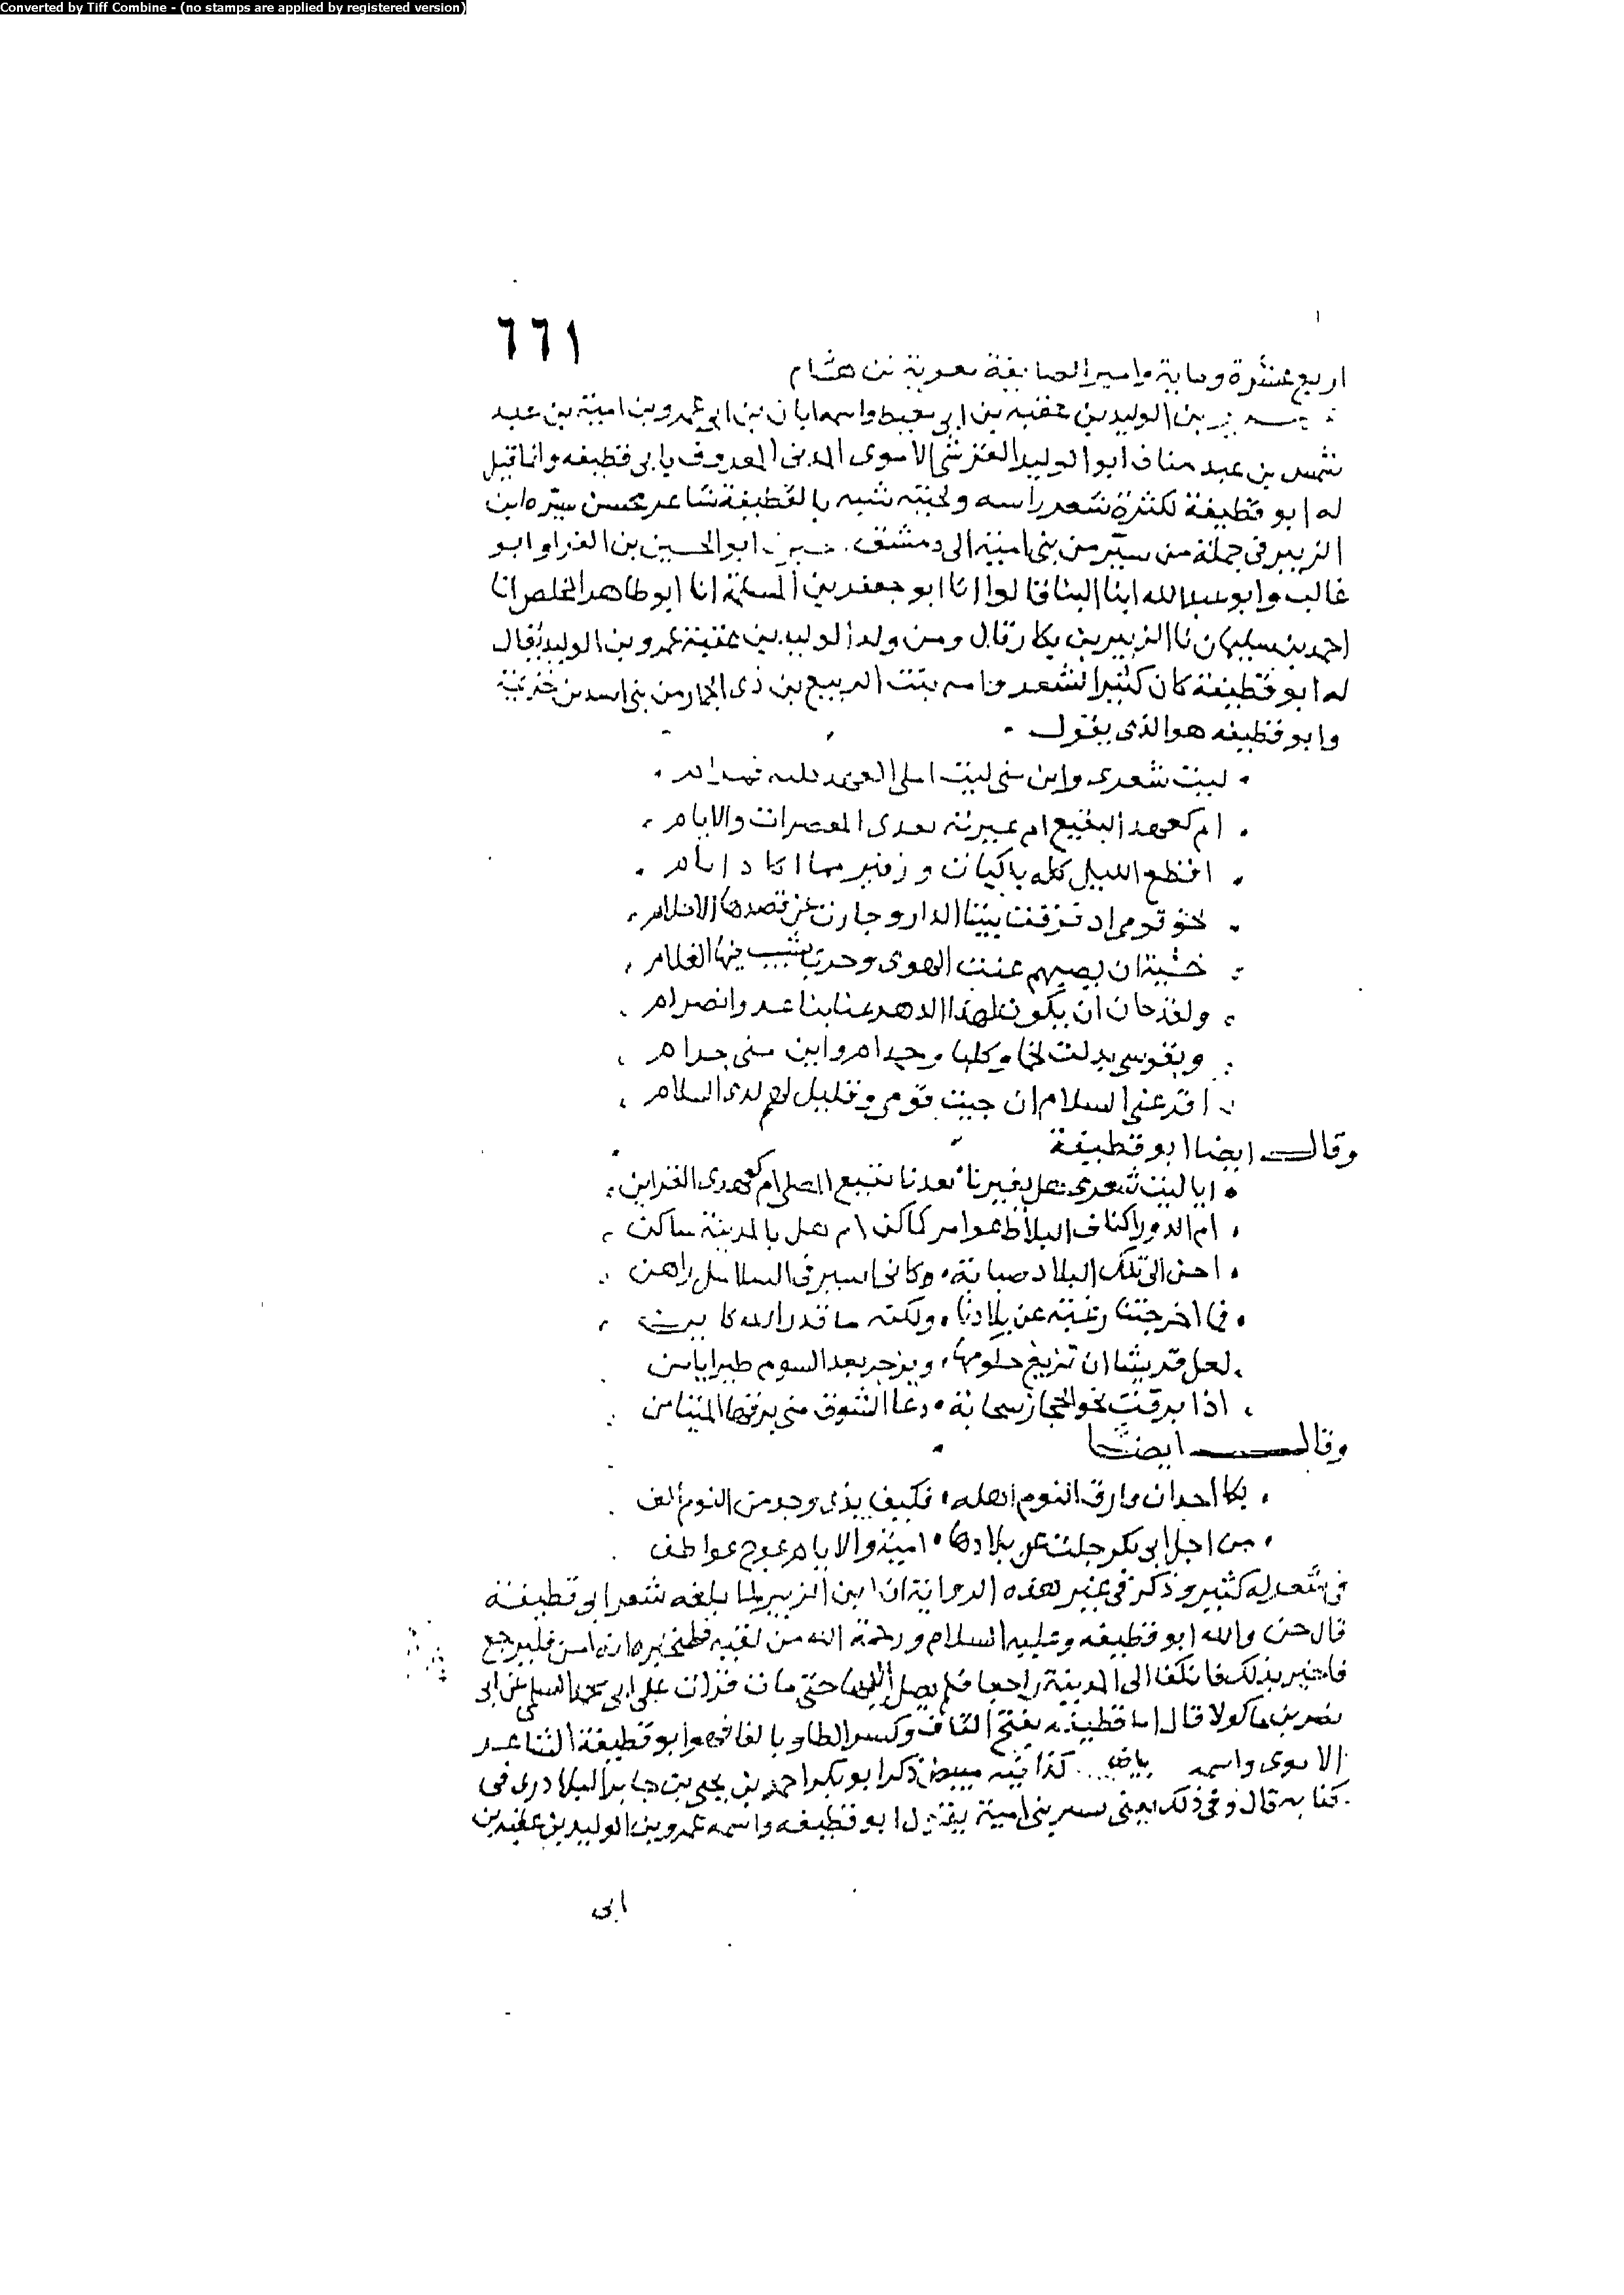 Converted by Tiff Combine - (no stamps are applied by registered version)
٦٦١
اربع عشرة وماية وامير الصايفة معوية بن هشام
بن الوليد بن عقبه بن ابى معيط واسمه ابان بن ابى عمرو بن امية بن عبد
شمس بن عبد مناف ابو الوليد القرشى الاموى المدنى المعروف بابى قطيفه وانما قيل
له ابو قطيفة لكثرة شعر راسه ولحيته شبه بالقطيفة شاعر محسن سيّره ابن
الزبير فى جملة من سيّر من بنى امية الى دمشق ابو الحسين بن الفرا وابو
غالب وابو عبد الله ابنا البنا قالوا انا ابو جعفر بن المسلمة انا ابو طاهر المخلص انا
احمد بن سليمان نا الزبير بن بكار قال ومن ولد الوليد بن عقبة عمرو بن الوليد يقال
له ابو قطيفة كان كثير الشعر وامه بنت الربيع بن ذى الخمار من بنى اسد بن خزيمة
وابو قطيفه هو الذى يقول
ليت شعرى واين منى ليت اعلى العهد يلبن فبرام
ام كعهد البقيع ام غيرته بعدى المعصرات والايام
اقطع الليل كله باكيات وزفير فما اكاد انام
نحو قومى اذ فرقت بيننا الدار وجارت عن قصدها الاحلام
خشية ان يصيبهم عنت الهوى وحرب يشيب فيها الغلام
ولقد حان ان يكون لهذا الدهر عنا تباعد وانصرام
وبقومى بدلت لخما وكلبا وجذام واين منى جذام
اقر عنى السلام ان جيت قومى وقليل لهم لدى السلام
وقال ايضا ابو قطيفة
ايا ليت شعرى هل تغير بعدنا بقيع المصلى ام كعهدى القراين
ام الدور اكناف البلاط عوامر كما كن ام هل بالمدينة ساكن
احن الى تلك البلاد صبابة كانى اسير فى السلاسل راهن
فما اخرجتنا رغبة عن بلادنا ولكنه ما قدر الله كاين
لعل قريشا ان تريغ حلومها ويزجر بعد السوم طير ايامن
اذا برقت نحو الحجاز سحابة دعا الشوق منى برقها المتيامن
وقال ايضا
بكا احد ان فارق النوم اهله فكيف بذى وجد من النوم الف
من اجل ابى بكر جلت عن بلادها امية والايام عوج عواطف
فى شعر له كثير وذكر فى غير هذه الرواية ان ابن الزبير لما بلغه شعر ابى قطيفة
قال حن والله ابو قطيفه وعليه السلام ورحمة الله من لقيه فليخبره انه امن فليرجع
فاخبر بذلك فانكفا الى المدينة راجعا فلم يصل اليها حتى مات قرات على ابى محمد السلمى عن ابى
نصر بن ماكولا قال اما قطيفه بفتح القاف وكسر الطا وبالفا فهو ابو قطيفة الشاعر
الاموى واسمه بياض كذا فيه مبيض ذكر ابو بكر احمد بن يحيى بن جابر البلاذرى فى
كتابه قال وفى ذلك يعنى تسيير بنى امية يقول ابو قطيفه واسمه عمرو بن الوليد بن عقبه بن
ابى